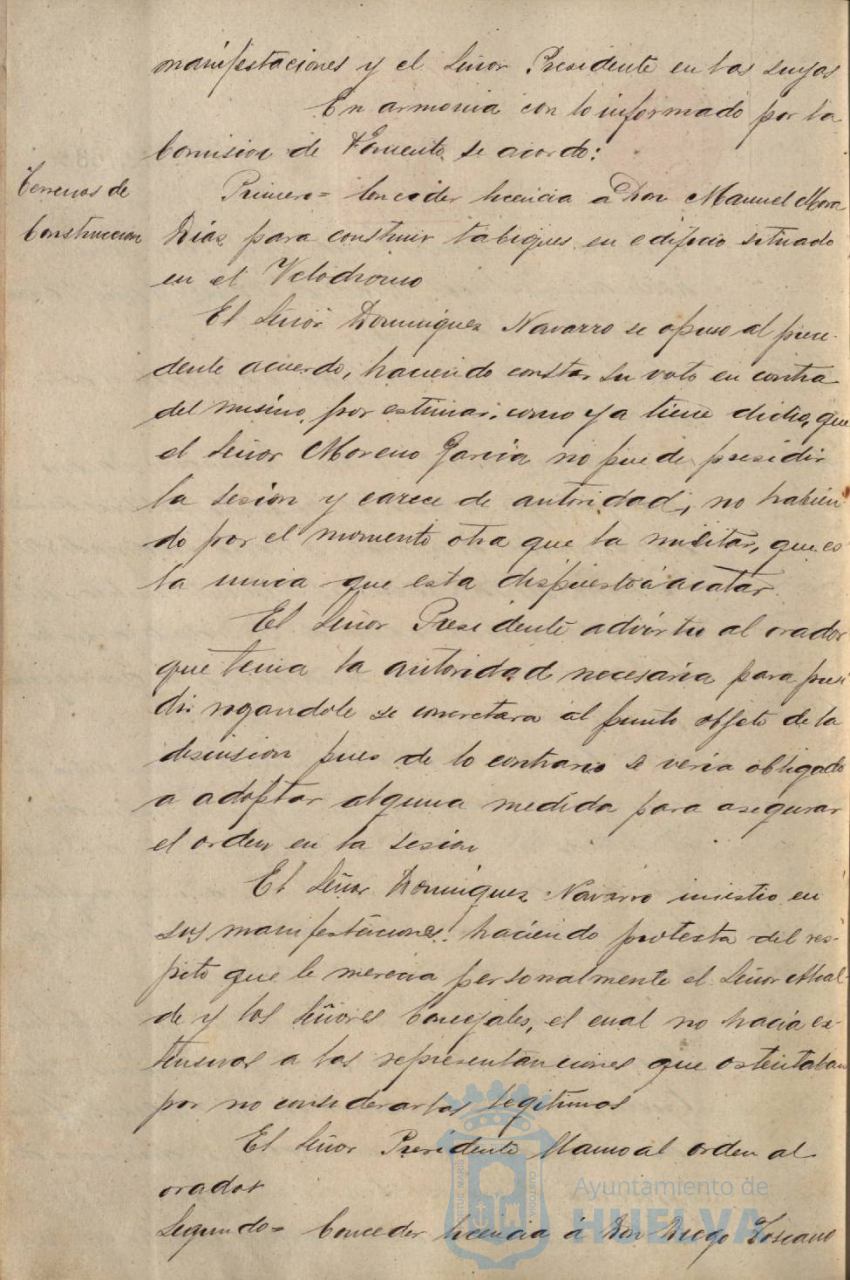 manifestaciones y el Señor Presidente en las suyas
En armonia con lo informado por la
Comision de Fomento se acordo:
Terrenos de
Construccion
Primero= Conceder licencia a Don Manuel Mora
Diaz para construir tabiques en edificio situado
en el Velodromo
El Señor Dominguez Navarro se opuso al prece-
dente acuerdo, haciendo constar su voto en contra
del mismo, por estimar, como ya tiene dicho, que
el Señor Moreno Garcia no puede presidir
la sesion y carece de autoridad, no habien
do por el momento otra que la militar, que es
la unica que esta dispuesto á acatar
El Señor Presidente advirtio al orador
que tenia la autoridad necesaria para presi
dir rogandole se concretara al punto objeto de la
discusion pues de lo contrario se veria obligado
a adoptar alguna medida para asegurar
el orden en la sesion
El Señor Dominguez Navarro insistio en
sus manifestaciones haciendo protesta del res-
peto que le merecia personalmente el Señor Alcal-
de y los Señores Concejales, el cual no hacia es-
tensivas a las representanciones que ostentaban
por no considerarlas legitimas
El Señor Presidente llamo al orden al
orador
Segundo= Conceder licencia á Don Diego Toscano
Ayuntamiento de
HUELVA